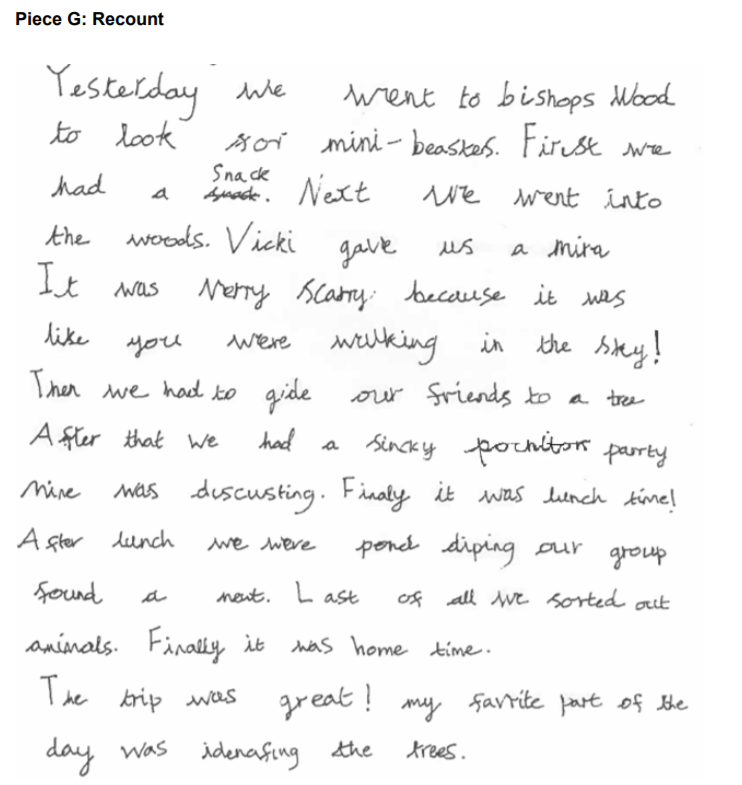 Piece G: Recount
Yesterday we went to bishops Wood
to look for mini-beastes. First we
had a snack Snack. Next we went into
the woods. Vicki gave us a mira
It was Verry Scarry. because it was
like you were walking in the sky!
Then we had to gide our friends to a tree
After that we had a sincky parrty
Mine was duscusting. Finaly it was lunch time!
After lunch we were pond diping our group
found a neut. Last of all we sorted out
animals. Finally it was home time.
The trip was great! my favrite part of the
day was idenafing the trees.